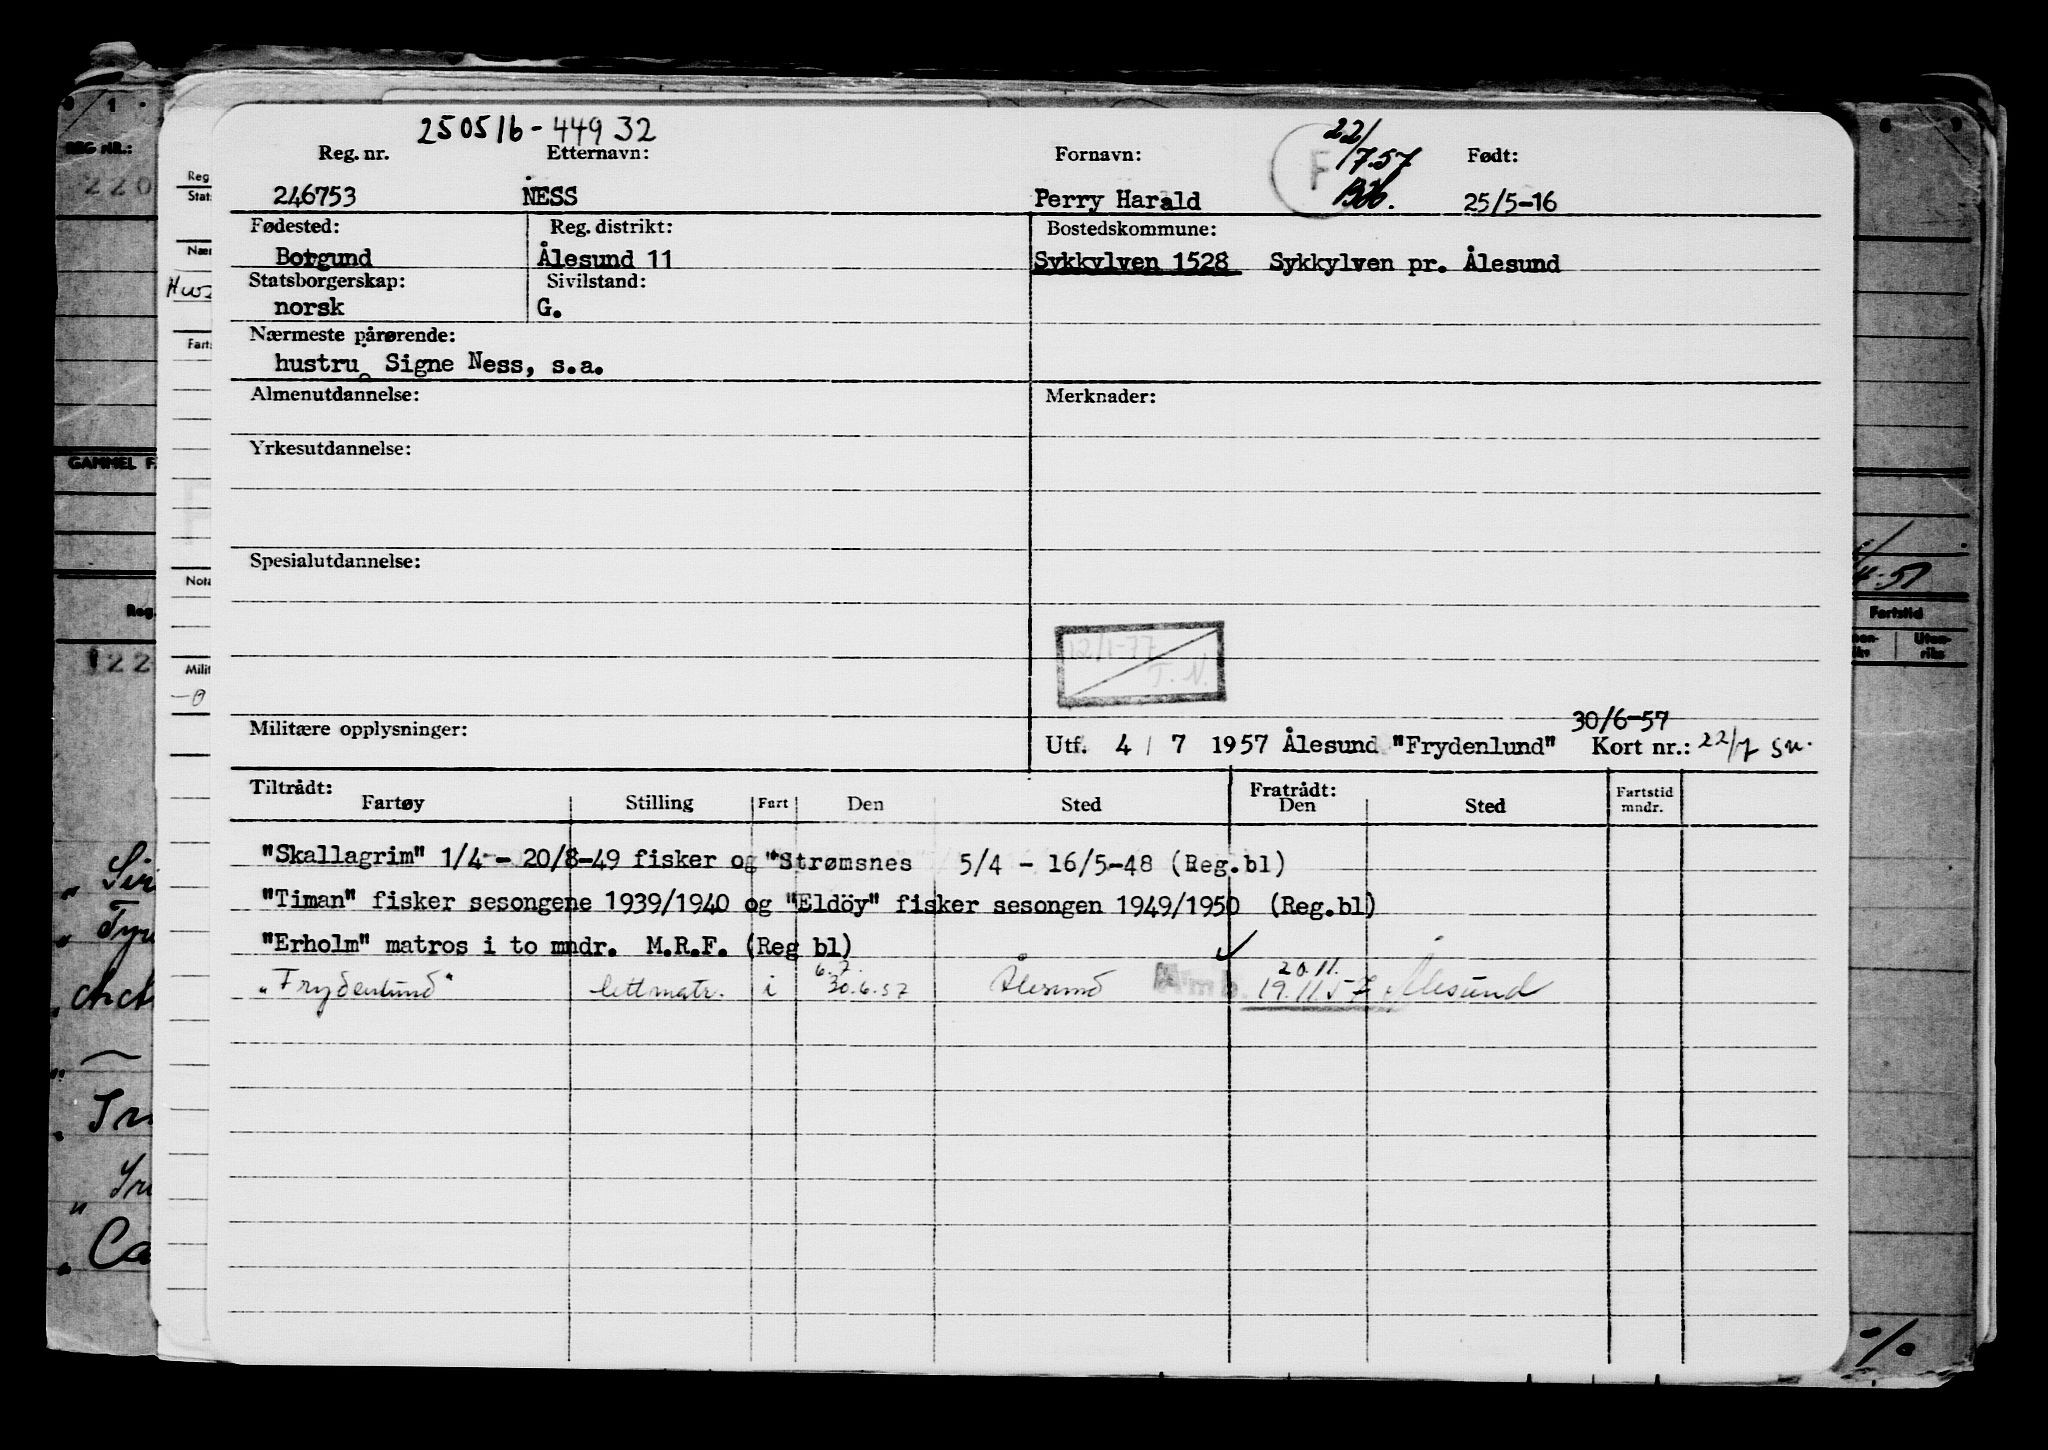 250516-44932
22/
7.57
Reg. nr. Etternavn: Fornavn: F Født:
246753 NESS Perry Harald 25/5-16
Fødested: Reg. distrikt: Bostedskommune:
Borgund Ålesund 11 Sykkylven 1528 Sykkylven pr. Ålesund
Statsborgerskap: Sivilstand:
norsk G.
Nærmeste pårørende:
hustru Signe Ness, s.a.
Almenutdannelse: Merknader:
Yrkesutdannelse:
Spesialutdannelse:
12/1-77
T.N.
30/6-57
Militære opplysninger: Utf. 4 / 7 1957 Ålesund "Frydenlund" Kort nr.: 22/7 su.
Tiltrådt: Fratrådt: Fartstid
Fartøy Stilling Fart Den Sted Den Sted mndr.
"Skallagrim" 1/4 - 20/8-49 fisker og "Strømsnes 5/4 - 16/5-48 (Reg.bl)
"Timan" fisker sesongene 1939/1940 og "Eldöy" fisker sesongen 1949/1950 (Reg.bl)
"Erholm" matros i to mndr. M.R.F. (Reg bl)
6.7. 20.11.
"Frydenlund" lettmatr. i 30.6.57 Ålesund Amb. 19.11.57 Ålesund
REG NR.:
220
GAMMEL F.
Reg.
122
Reg
Stat
Nær
Farts
Nota
Milit
4.57
Fartstid
Uten-
riks